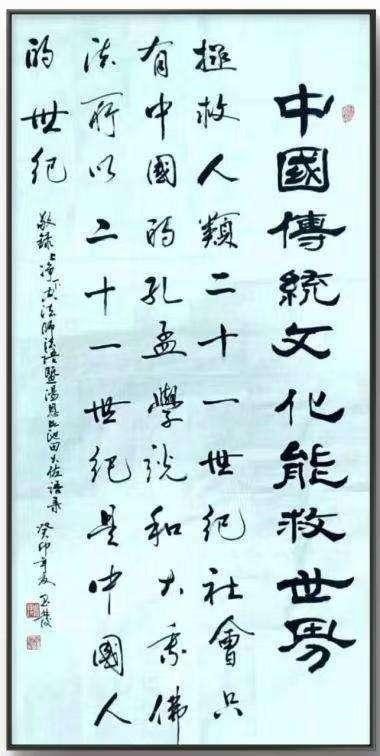 中國傳統文化能救世界
拯救人類二十一世紀社會只
有中國的孔孟學說和大乘佛
法所以二十一世紀是中國人
的世紀
敬錄上淨下空法師法語暨湯恩比池田大佐語录 癸卯年夏